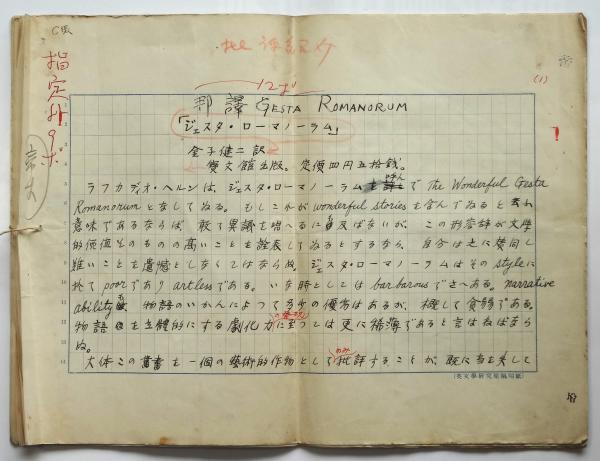 C版
指定外9ポ
批評紹介
(1)
12ポ
邦譯 GESTA ROMANORUM
「ジェスタ・ローマノーラム」
金子健二 訳
雙文館出版。定價四円五拾錢。
ラフカディオ・ヘルンは、ジェスタ・ローマノーラム で the Wonderful Gesta
Romanorum となしてゐる。もしこれが wonderful stories を含んでゐると云ふ
意味であるならば、敢て異議を唱へるに及ばないが、この形容辞が文學
的価値そのものの高いことを証表してゐるとするなら、自分は之に賛同し
難いことを遺憾としなくてはならぬ。ジェスタ・ローマノーラムはその style に
於て poor であり artless である。いな時としては barbarous でさへある。narrative
ability も 物語のいかんによつて多少の優劣はあるが、概して貧弱である。
物語 を立體的にする劇化力 に至つては更に稀薄であると言はねばなら
ぬ。
大体この書を一個の藝術的作物としてのみ批評することが、既に当を失して
(英文學研究原稿用紙)